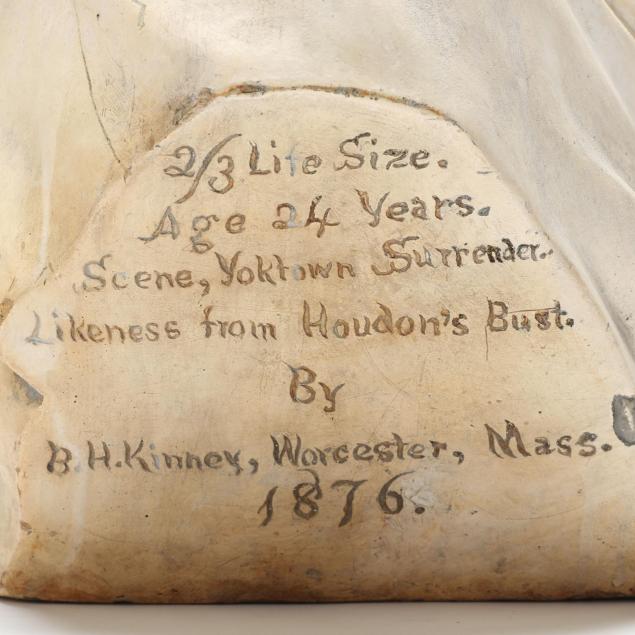 2/3 Life Size.
Age 24 Years.
Scene, Yoktown Surrender.
Likeness from Houdon's Bust.
By
B.H.Kinney, Worcester, Mass.
1876.